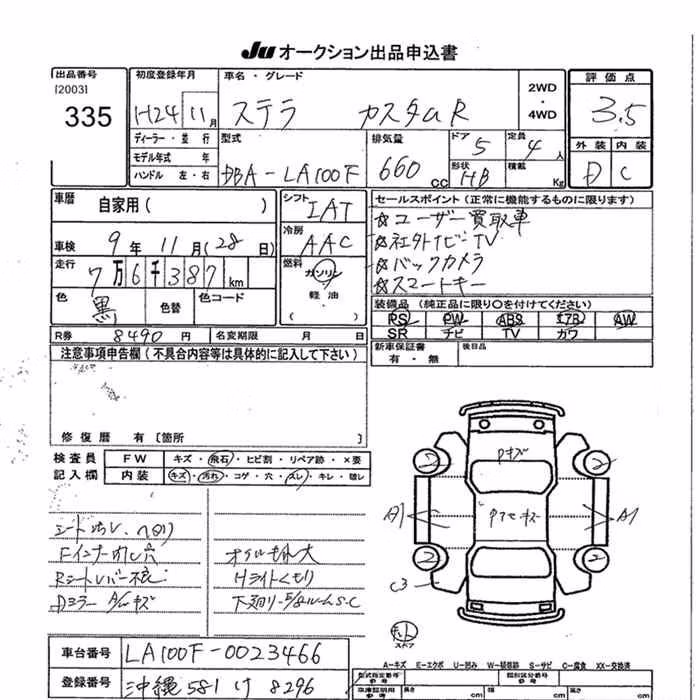 JU オークション出品申込書
出品番号
[2003]
335
初度登録年月
H24 11月
車名・グレード
ステラ カスタムR
2WD
・
4WD
評価点
3.5
ディーラー・並行
モデル年式 年
ハンドル 左・右
型式
DBA-LA100F
排気量
660 cc
ドア 5
定員 4人
形状 HB
積載 Kg
外装 内装
D C
車歴
自家用( )
車検 9年 11月(28日)
走行 7万6千387km
色 黒
色替
色コード
シフト IAT
冷房 AAC
燃料 ガソリン
軽油
セールスポイント(正常に機能するものに限ります)
☆ユーザー買取車
☆社外ナビTV
☆バックカメラ
☆スマートキー
装備品(純正品に限り○を付けてください)
PS PW ABS エアB AW
SR ナビ TV ガワ
R券 8490円
名変期限 月 日
新車保証書 有・無
後日品
注意事項申告欄(不具合内容等は具体的に記入して下さい)
修復歴 有 [箇所 ]
検査員
記入欄
FW キズ・飛石・ヒビ割・リペア跡・×要
内装 キズ・汚れ・コゲ・穴・スレ・キレ・破レ
Fインナー 穴
Rシートレバー不良
Dミラー A キズ
オイルもれ大
Hライトくもり
下廻り S・C
Pキズ
2 2
A1 A1
2 2
C3
スペア
車台番号 LA100F-0023466
登録番号 沖縄 581 け 8296
A-キズ E-エクボ U-凹み W-板金跡 S-サビ C-腐食 XX-交換済
型式指定番号
類別区分番号